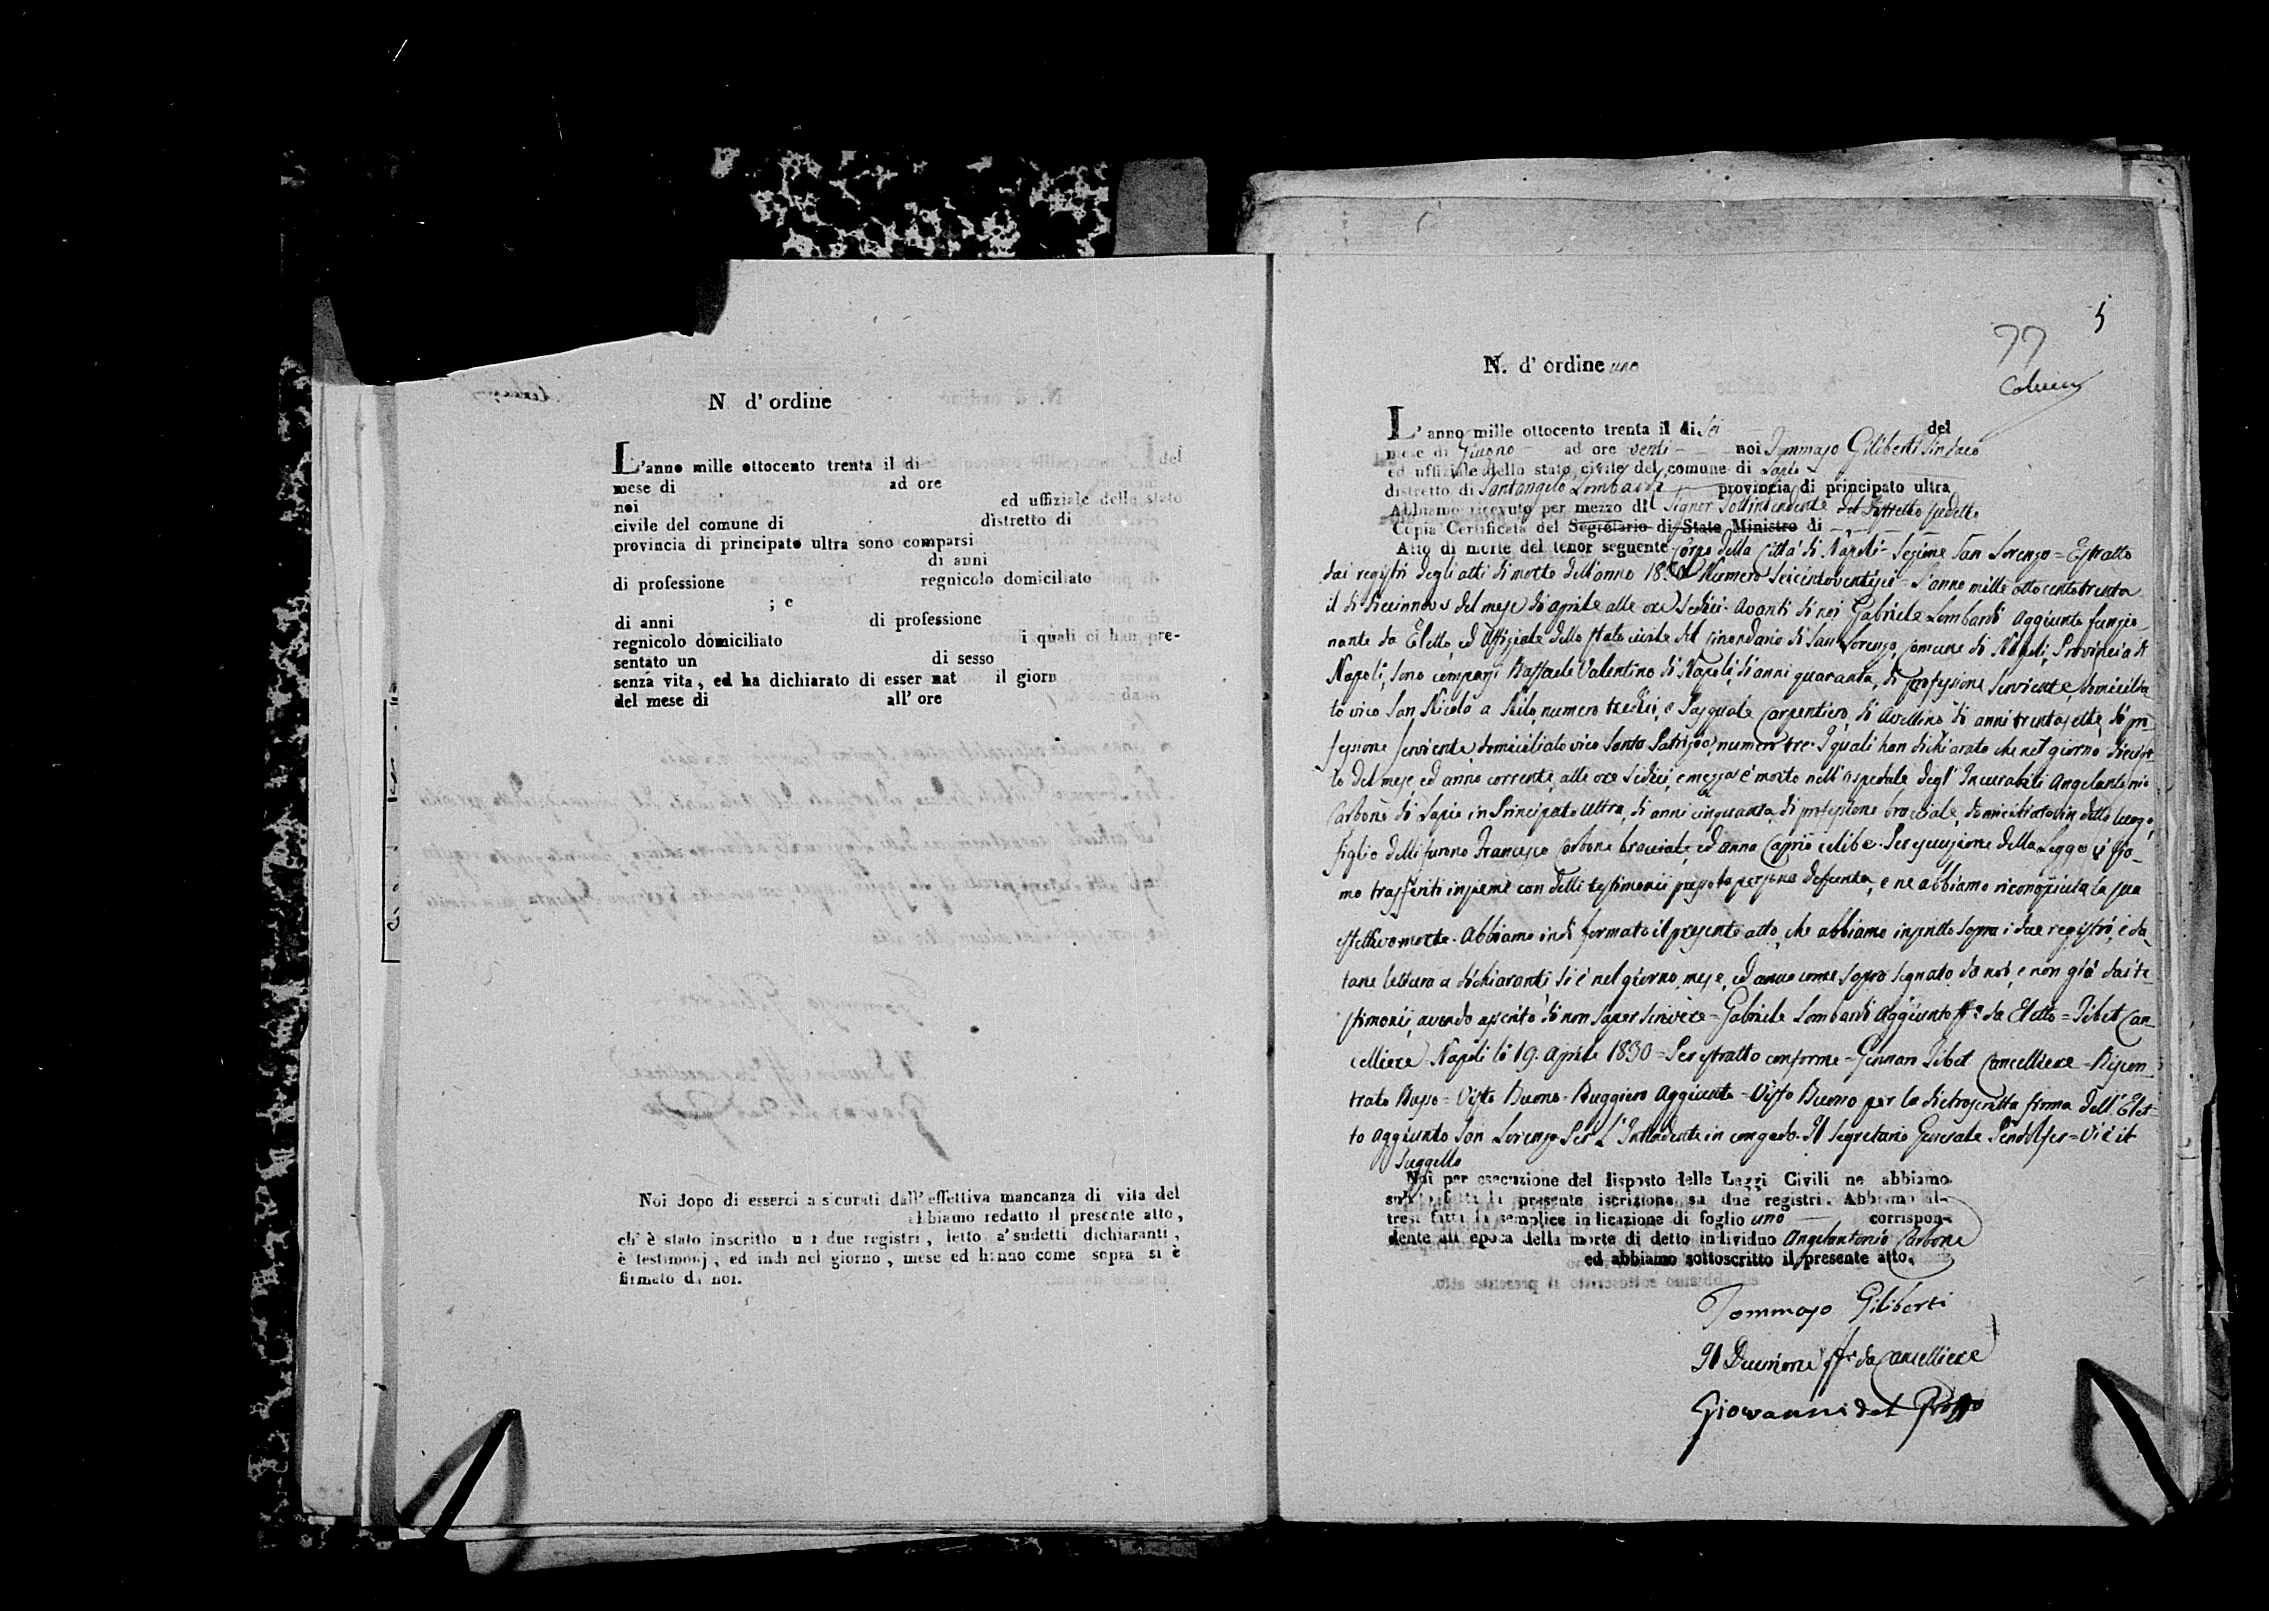 N d' ordine
L'anno mille ottocento trenta il di del
mese di ad ore
noi ed uffiziale dello stato
civile del comune di distretto di
provincia di principato ultra sono comparsi
di anni
di professione regnicolo domiciliato
; e
di anni di professione
regnicolo domiciliato i quali ci han pre-
sentato un di sesso
senza vita, ed ha dichiarato di esser nat il giorn
del mese di all' ore
Noi dopo di esserci assicurati dall'effettiva mancanza di vita del
abbiamo redatto il presente atto,
ch' è stato inscritto su i due registri, letto a' sudetti dichiaranti,
è testimonj, ed indi nel giorno, mese ed hanno come sopra si è
firmato da noi.
5
77
N. d' ordine uno
L' anno mille ottocento trenta il di sei del
mese di Giugno ad ore venti noi Tommaso Giliberti Sindaco
ed uffiziale dello stato civile del comune di Lapio
distretto di Santangelo Lombardi provincia di principato ultra
Abbiamo ricevuto per mezzo di Signor Sottintendente del Distretto sudetto
Copia Certificata del Segretario di Stato Ministro di
Atto di morte del tenor seguente Corpo della Città di Napoli - Sezione San Lorenzo = Estratto
dai registri degli atti di morte dell'anno 1830 Numero seicentoventisei = L'anno mille ottocentotrenta
il di diecinnove del mese di aprile alle ore sedici. Avanti di noi Gabriele Lombardi Aggiunto funzio-
nante da Eletto, ed Uffiziale dello stato civile del circondario di San Lorenzo, Comune di Napoli, Provincia di
Napoli, sono comparsi Raffaele Valentino di Napoli, di anni quaranta, di professione serviente, domicilia-
to vico San Nicola a Nilo, numero tredici, e Pasquale Carpentiero, di Avellino di anni trentasette, di pro-
fessione serviente, domiciliato vico Santa Patrizia, numero tre. I quali han dichiarato che nel giorno diciot-
to del mese, ed anno corrente, alle ore sedici, e mezza è morto nell'ospedale degl' Incurabili Angelantonio
Carbone di Lapio in Principato Ultra, di anni cinquanta, di professione bracciale, domiciliato in detto luogo,
figlio delli furono Francesco Carbone bracciale, ed Anna Caprio celibe. Per esecuzione della Legge ci sia-
mo trasferiti insieme con detti testimonii presso la persona defunta, e ne abbiamo riconosciuta la sua
effettiva morte. Abbiamo indi formato il presente atto, che abbiamo inscritto sopra i due registri, e da-
tane lettura a dichiaranti, si è nel giorno, mese, ed anno come sopra segnato da noi, e non già dai te-
stimonii, avendo asserito di non saper scrivere = Gabriele Lombardi Aggiunto ff: da Eletto = Tibet Can-
celliere Napoli li 19. Aprile 1830 = Per estratto conforme = Gennaro Tibet Cancelliere = Riscon-
trato = Visto Buono = Ruggiero Aggiunto = Visto Buono per la dietroscritta firma dell' Elet-
to Aggiunto San Lorenzo Per L' Intendente in congedo. Il Segretario Generale = Vi è il
Suggello
Noi per esecuzione del disposto delle Leggi Civili ne abbiamo
subito fatta la presente iscrizione su due registri. Abbiamo al-
tresì fatta la semplice indicazione di foglio uno corrispon-
dente all' epoca della morte di detto individuo Angelantonio Carbone
ed abbiamo sottoscritto il presente atto.
Tommaso Giliberti
Il Decurione ff: da Cancelliere
Giovanni del Grosso